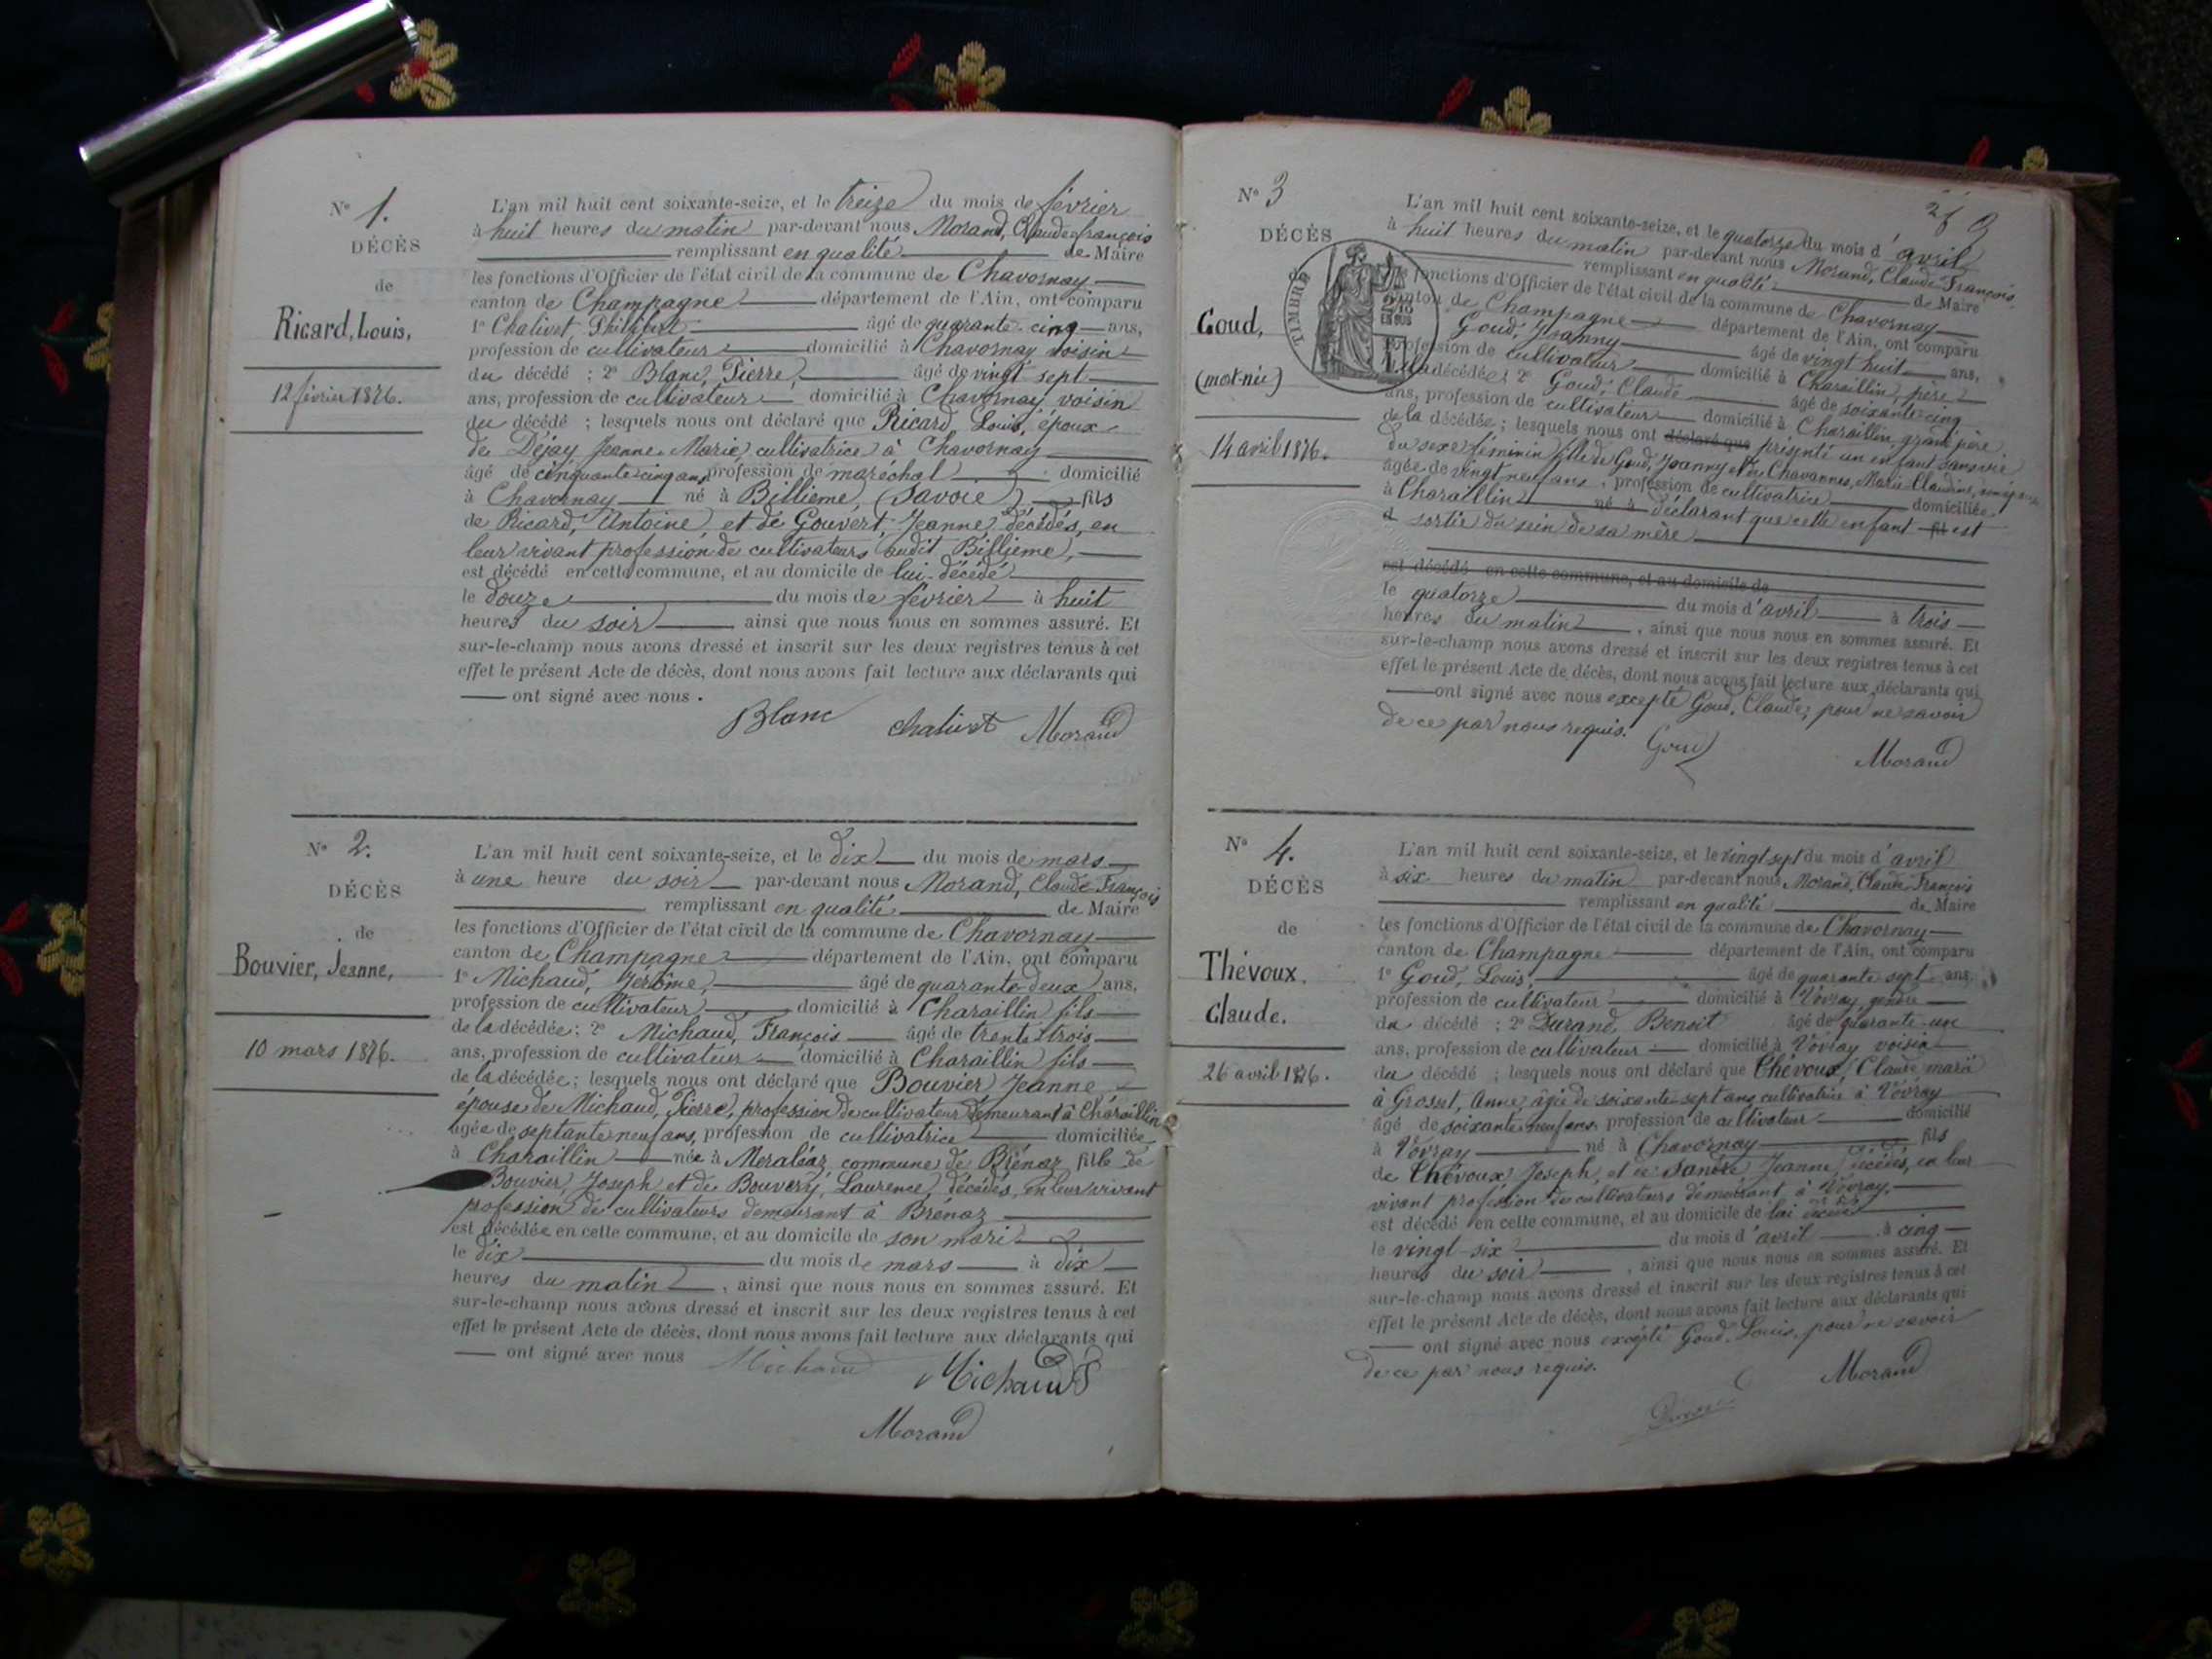 N° 1.
DÉCÈS
de
Ricard, Louis,
12 février 1876.
L'an mil huit cent soixante-seize, et le treize du mois de février
à huit heures du matin par-devant nous Morand, Claude françois
remplissant en qualité de Maire
les fonctions d'Officier de l'état civil de la commune de Chavornay
canton de Champagne département de l'Ain, ont comparu
1° Chalivet Philibert âgé de quarante-cinq ans,
profession de cultivateur domicilié à Chavornay voisin
du décédé ; 2° Blanc, Pierre, âgé de vingt sept
ans, profession de cultivateur domicilié à Chavornay voisin
du décédé ; lesquels nous ont déclaré que Ricard Louis, époux
de Déjay Jeanne-Marie, cultivatrice à Chavornay
âgé de cinquante-cinq ans, profession de maréchal domicilié
à Chavornay né à Billieme, (Savoie) fils
de Ricard, Antoine, et de Gouvert, Jeanne décédés, en
leur vivant profession de cultivateurs audit Billieme,
est décédé en cette commune, et au domicile de lui-décédé
le douze du mois de février à huit
heures du soir ainsi que nous nous en sommes assuré. Et
sur-le-champ nous avons dressé et inscrit sur les deux registres tenus à cet
effet le présent Acte de décès, dont nous avons fait lecture aux déclarants qui
ont signé avec nous.
Blanc Chalivet Morand
N° 2.
DÉCÈS
de
Bouvier, Jeanne,
10 mars 1876.
L'an mil huit cent soixante-seize, et le dix du mois de mars
à une heure du soir par-devant nous Morand, Claude François
remplissant en qualité de Maire
les fonctions d'Officier de l'état civil de la commune de Chavornay
canton de Champagne département de l'Ain, ont comparu
1° Michaud, Jérôme, âgé de quarante-deux ans,
profession de cultivateur domicilié à Charaillin fils
de la décédée ; 2° Michaud, François âgé de trente trois
ans, profession de cultivateur domicilié à Charaillin fils
de la décédée ; lesquels nous ont déclaré que Bouvier Jeanne
épouse de Michaud, Pierre, profession de cultivateur demeurant à Charaillin
âgée de septante neuf ans, profession de cultivatrice domiciliée
à Charaillin née à Meraléaz commune de Brénaz fille de
Bouvier, Joseph et de Bouvery, Laurence, décédés, en leur vivant
profession de cultivateurs demeurant à Brénaz
est décédée en cette commune, et au domicile de son mari
le dix du mois de mars à dix
heures du matin, ainsi que nous nous en sommes assuré. Et
sur-le-champ nous avons dressé et inscrit sur les deux registres tenus à cet
effet le présent Acte de décès, dont nous avons fait lecture aux déclarants qui
ont signé avec nous Michaud Michaud
Morand
N° 3
DÉCÈS
Goud,
(mort-née)
14 avril 1876.
TIMBRE
2/10
EN SUS
L'an mil huit cent soixante-seize, et le quatorze du mois d'avril
à huit heures du matin par-devant nous Morand, Claude François
remplissant en qualité de Maire
les fonctions d'Officier de l'état civil de la commune de Chavornay
canton de Champagne département de l'Ain, ont comparu
Goud, Joanny âgé de vingt huit ans,
profession de cultivateur domicilié à Charaillin, père
de la décédée ; 2° Goud, Claude âgé de soixante-cinq
ans, profession de cultivateur domicilié à Charaillin grand père
de la décédée ; lesquels nous ont déclaré que présenté un enfant sans vie
du sexe féminin fille de Goud, Joanny et de Chavannes, Marie Claudine,
âgée de vingt neuf ans, profession de cultivatrice domiciliée
à Charaillin né à déclarant que cette enfant est
sortie du sein de sa mère
est décédé en cette commune, et au domicile de
le quatorze du mois d'avril à trois
heures du matin, ainsi que nous nous en sommes assuré. Et
sur-le-champ nous avons dressé et inscrit sur les deux registres tenus à cet
effet le présent Acte de décès, dont nous avons fait lecture aux déclarants qui
ont signé avec nous excepté Goud, Claude, pour ne savoir
de ce par nous requis. Goud
Morand
N° 4.
DÉCÈS
de
Thévoux.
Claude.
26 avril 1876.
L'an mil huit cent soixante-seize, et le vingt sept du mois d'avril
à six heures du matin par-devant nous Morand, Claude François
remplissant en qualité de Maire
les fonctions d'Officier de l'état civil de la commune de Chavornay
canton de Champagne département de l'Ain, ont comparu
1° Goud, Louis, âgé de quarante sept ans,
profession de cultivateur domicilié à Vovray gendre
du décédé ; 2° Durand Benoit âgé de quarante-un
ans, profession de cultivateur domicilié à Vovray voisin
du décédé ; lesquels nous ont déclaré que Thévoux, Claude marié
à Grosset, Anne, âgée de soixante-sept ans cultivatrice à Vovray
âgé de soixante neuf ans, profession de cultivateur domicilié
à Vovray né à Chavornay fils
de Thévoux, Joseph, et de Sandre Jeanne, décédés, en leur
vivant profession de cultivateurs demeurant à Vovray,
est décédé en cette commune, et au domicile de lui décédé
le vingt-six du mois d'avril à cinq
heures du soir, ainsi que nous nous en sommes assuré. Et
sur-le-champ nous avons dressé et inscrit sur les deux registres tenus à cet
effet le présent Acte de décès, dont nous avons fait lecture aux déclarants qui
ont signé avec nous excepté Goud, Louis, pour ne savoir
de ce par nous requis. Morand
Durand